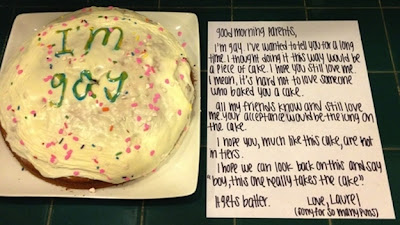 I'm
gay
good morning Parents,
I'm gay. I've wanted to tell you for a long
time. I thought doing it this way would be a
piece of cake. I hope you still love me.
I mean, it's hard not to love someone
who baked you a cake.
All my friends know and still love
me. your acceptance would be the icing on
the cake.
I hope you, much like this cake, are not
in tiers.
I hope we can look back on this and say
"boy, this one really takes the cake".
It gets batter.
Love, Laurel
(sorry for so many Puns)